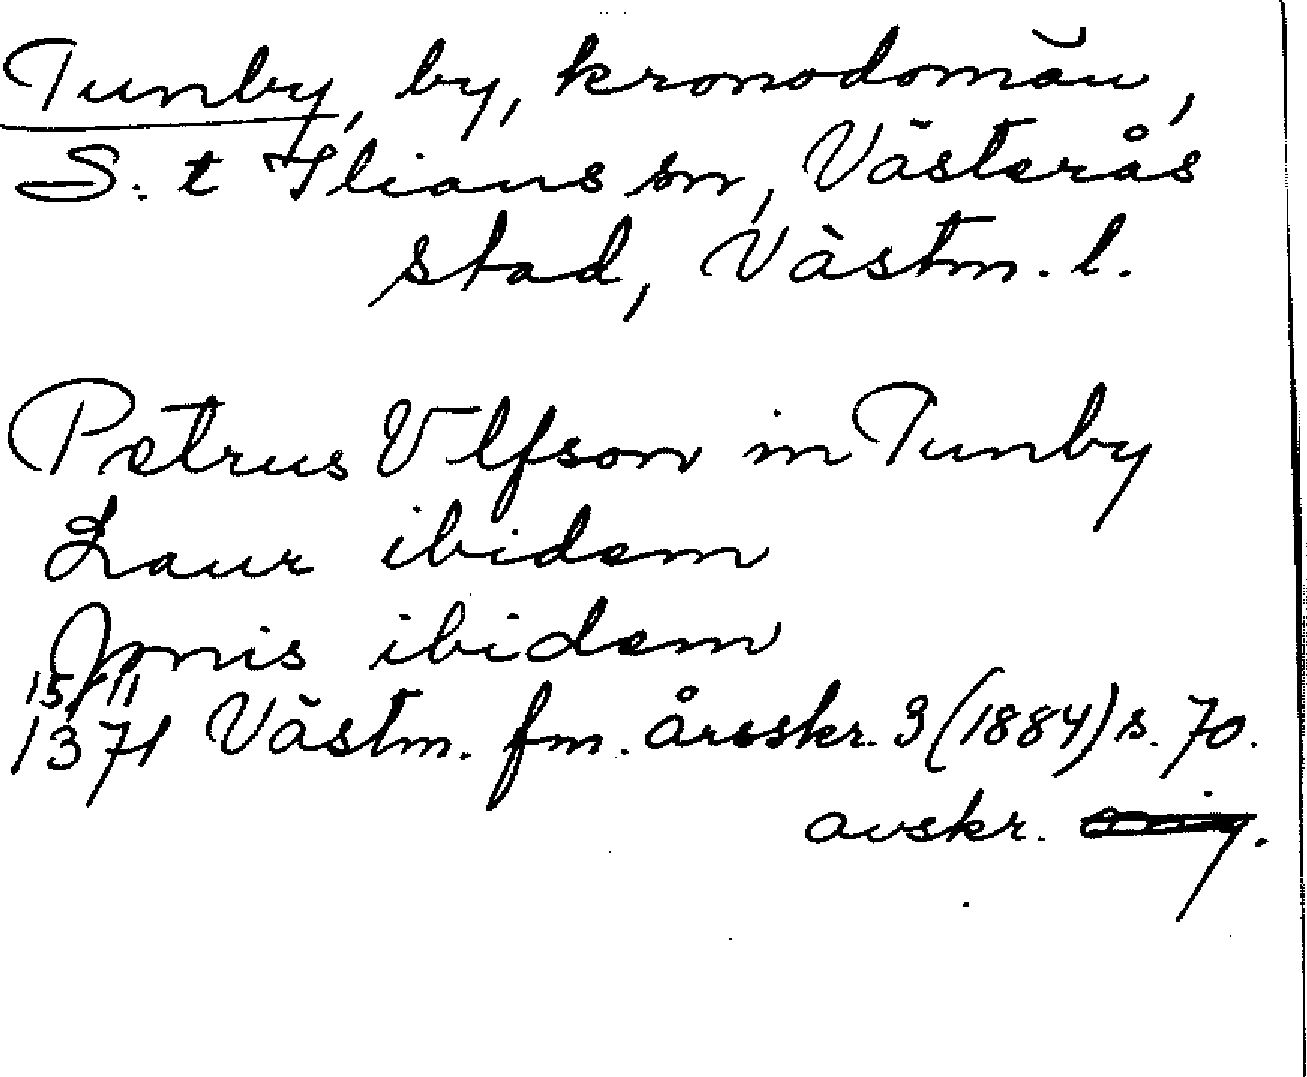 Tunby, by, kronodomän,
S:t Ilians sn, Västerås
stad, Västm. l.
Petrus Vlfson in Tunby
Laur ibidem
Jonis ibidem
15/11
1371 Västm. fm. årsskr. 3 (1884) s. 70.
avskr.